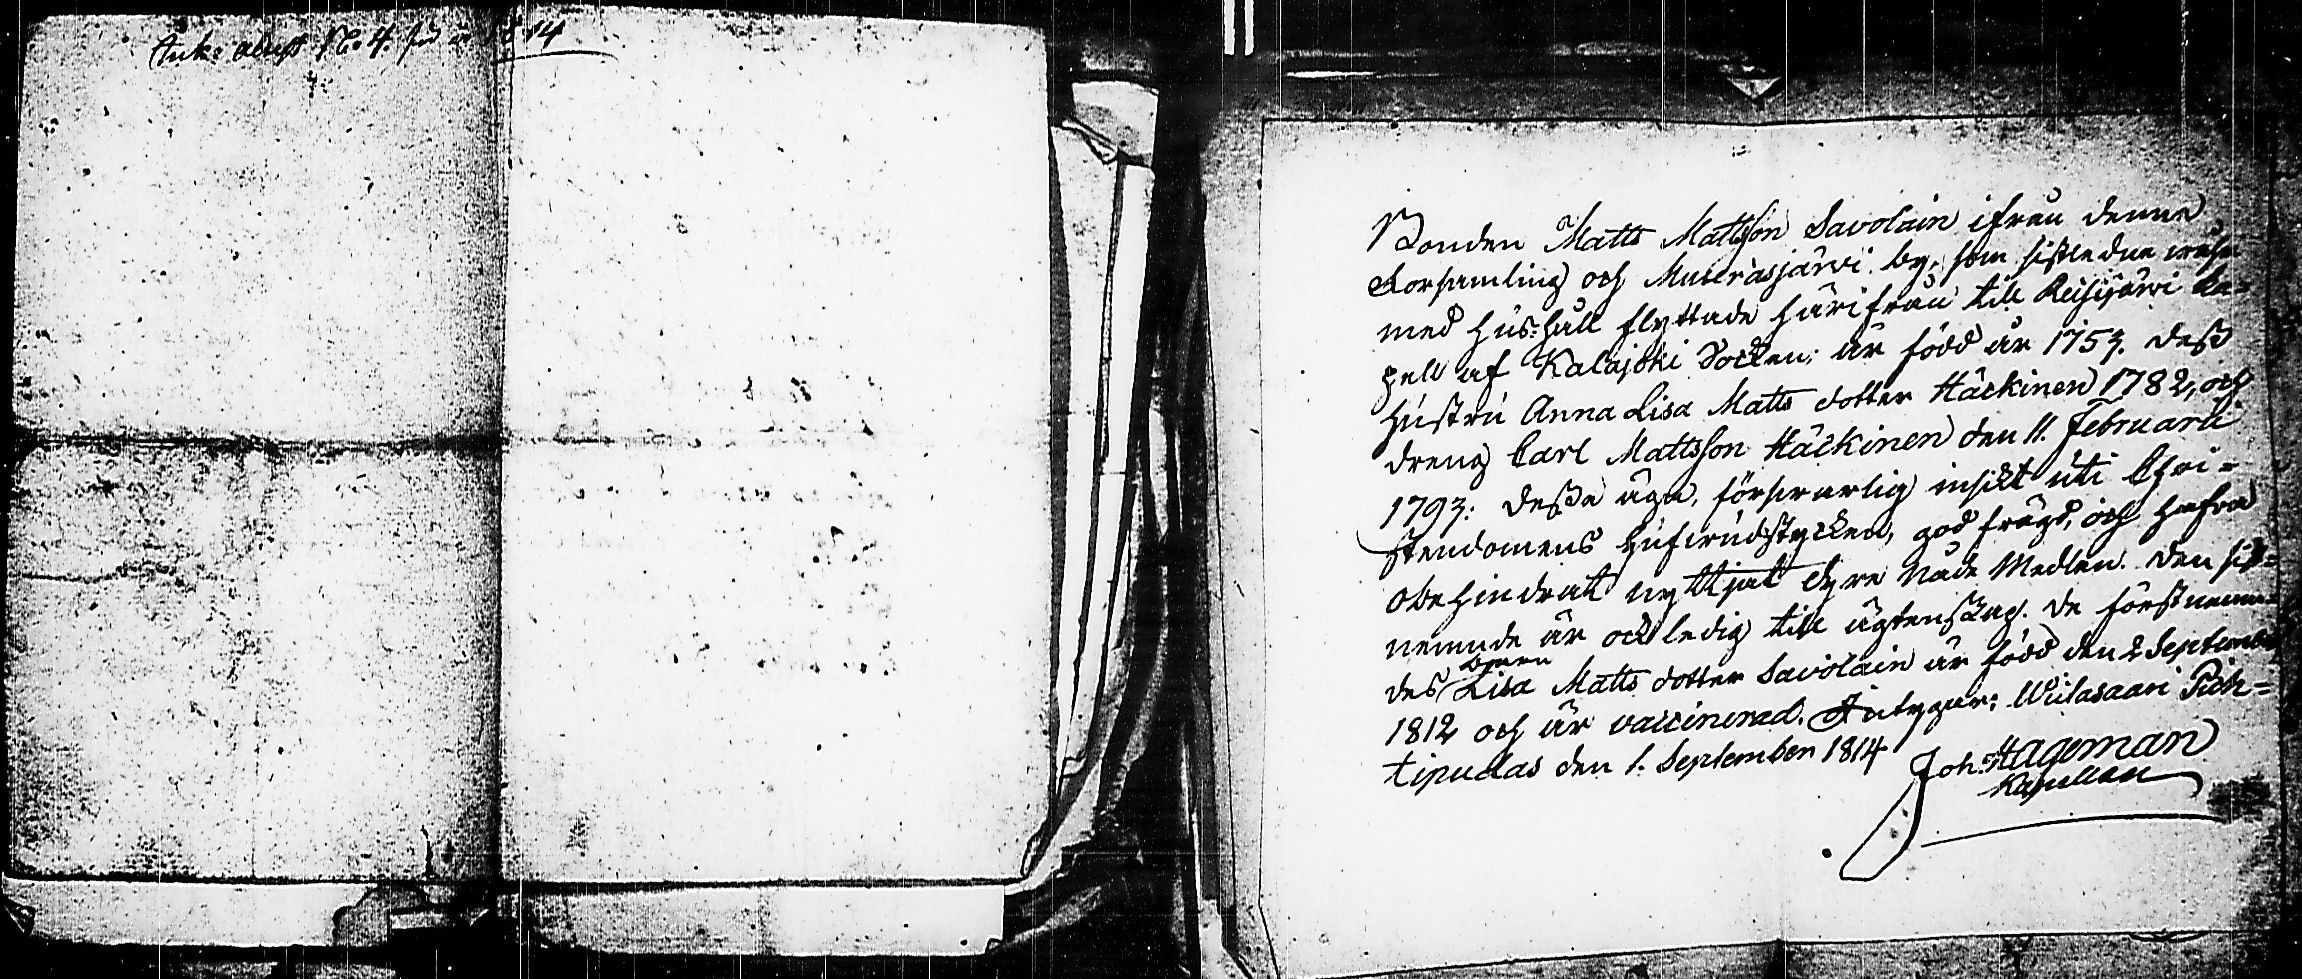 Ank: attest No: 4. för år 1814
Bonden Matts Mattsson Savolain ifrån denne
Församling och Muurasjärvi by, som sistledne
med hus:håll flyttade härifrån till Reisijärvi Ka-
pell af Kalajoki Socken; är född år 1753. dess
hustru Anna Lisa Matts dotter Häckinen 1782, och
dreng Carl Mattsson Häckinen den 11. Februarii
1793: dessa äga, försvarlig insikt uti Chri-
stendomens hufvudstycken, god frägd, och hafva
obehindrat nyttjat dyre Nåde Medlen. den sist-
nemnde är ock ledig till ägtenskap. de förstnemn-
des barn Lisa Matts dotter Savolain är född den 2 September
1812 och är vaccinerad. Intygar: Wiitasaari Pich-
tipudas den 1. September 1814
Joh. Hageman
Kapellan